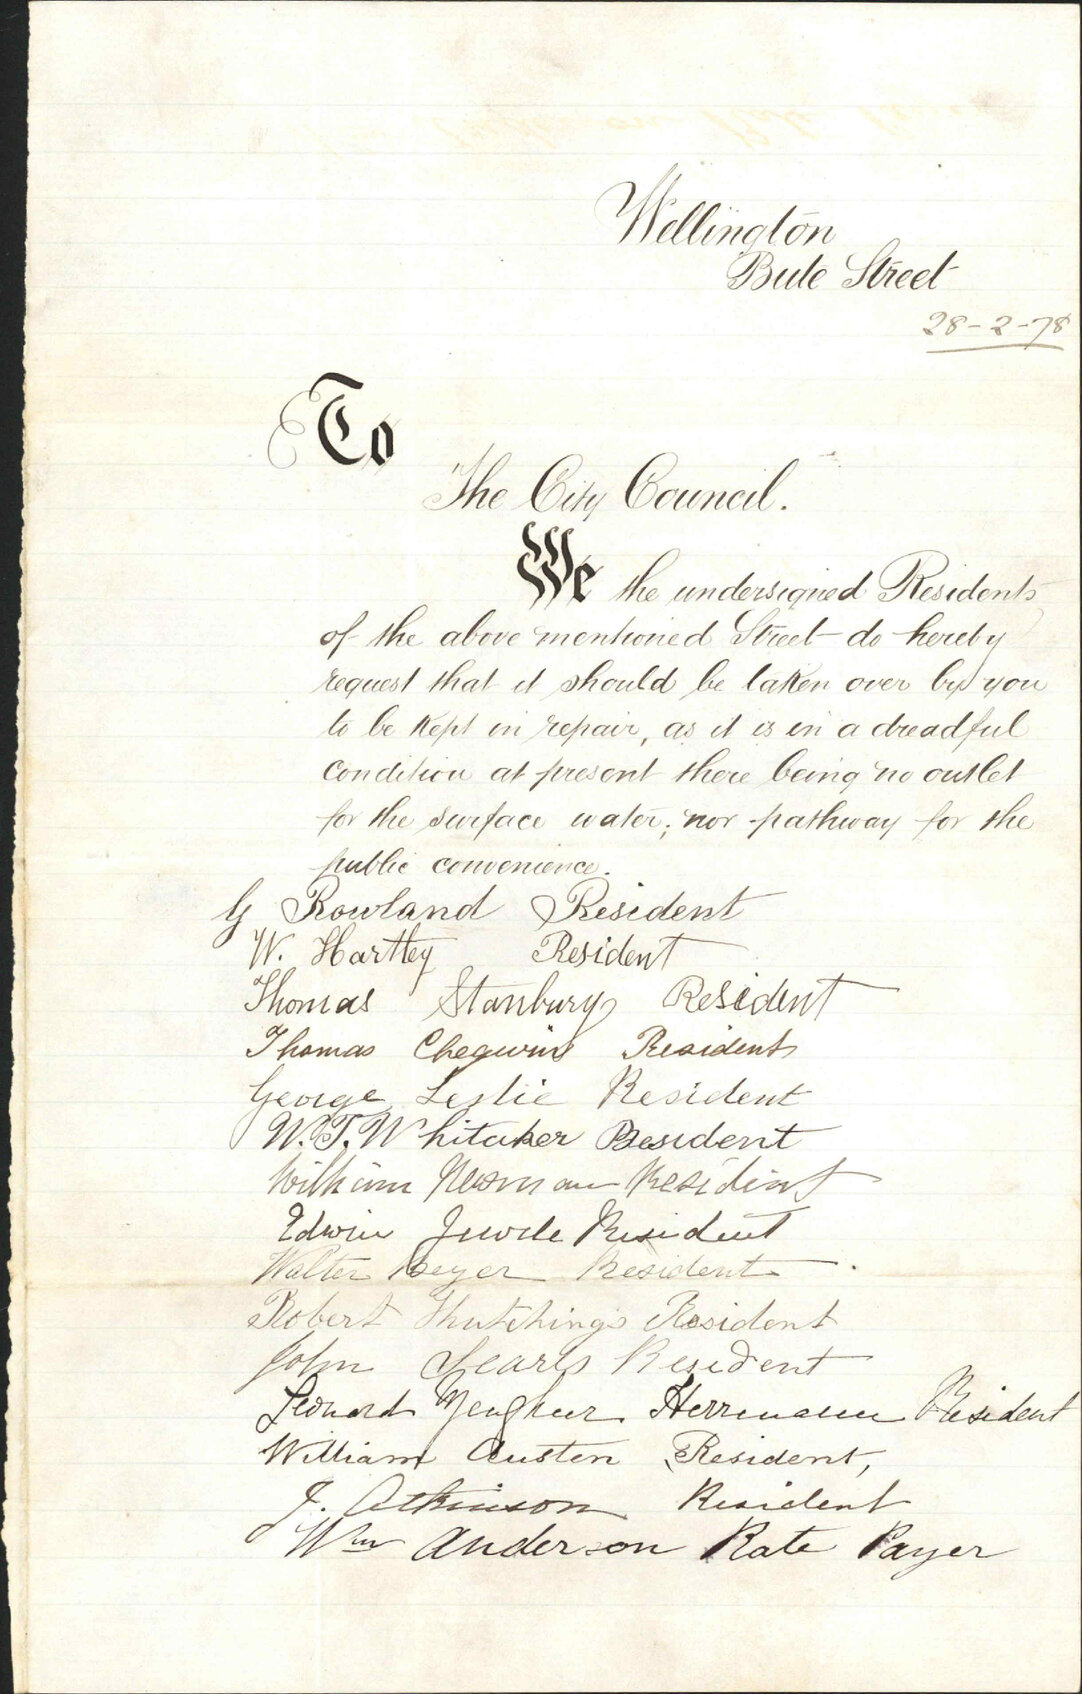 Wellington
Bute Street
28-2-78
To
The City Council.
We the undersigned Residents
of the above mentioned Street do hereby
request that it should be taken over by you
to be kept in repair, as it is in a dreadful
condition at present there being no outlet
for the surface water; nor pathway for the
public convenience.
G Rowland Resident
W. Hartley Resident
Thomas Stanbury Resident
Thomas Chegwin Resident
George Leslie Resident
W. T. Whitaker Resident
William Newman Resident
Edwin Resident
Walter Resident
Robert Hutchings Resident
John Searls Resident
Leonard Herrmann Resident
William Austen Resident,
J. Atkinson Resident
Wm Anderson Rate Payer